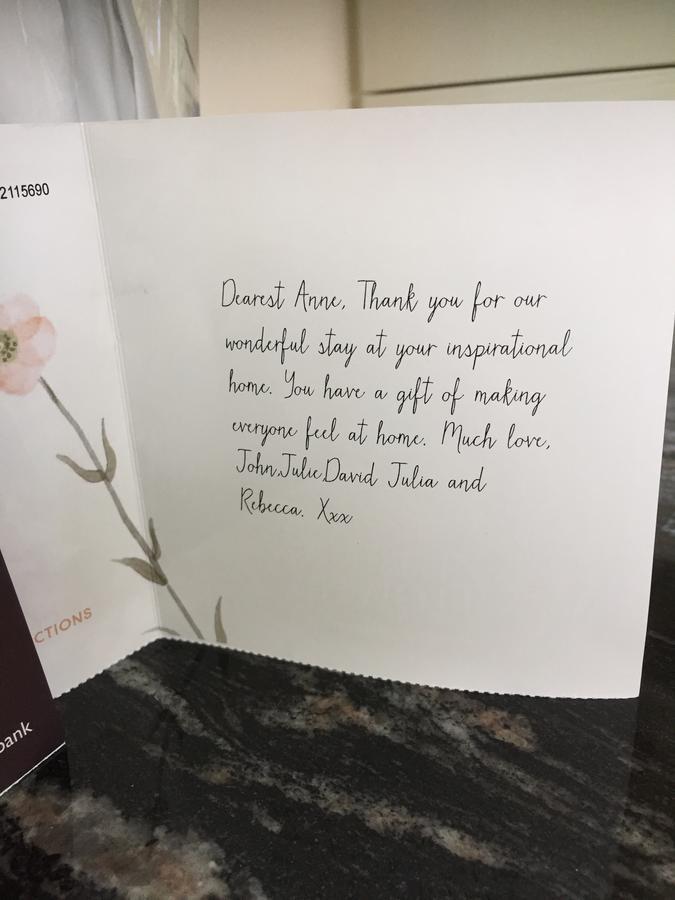 2115690
Dearest Anne, Thank you for our
wonderful stay at your inspirational
home. You have a gift of making
everyone feel at home. Much love,
John,Julie,David Julia and
Rebecca. Xxx
CTIONS
bank